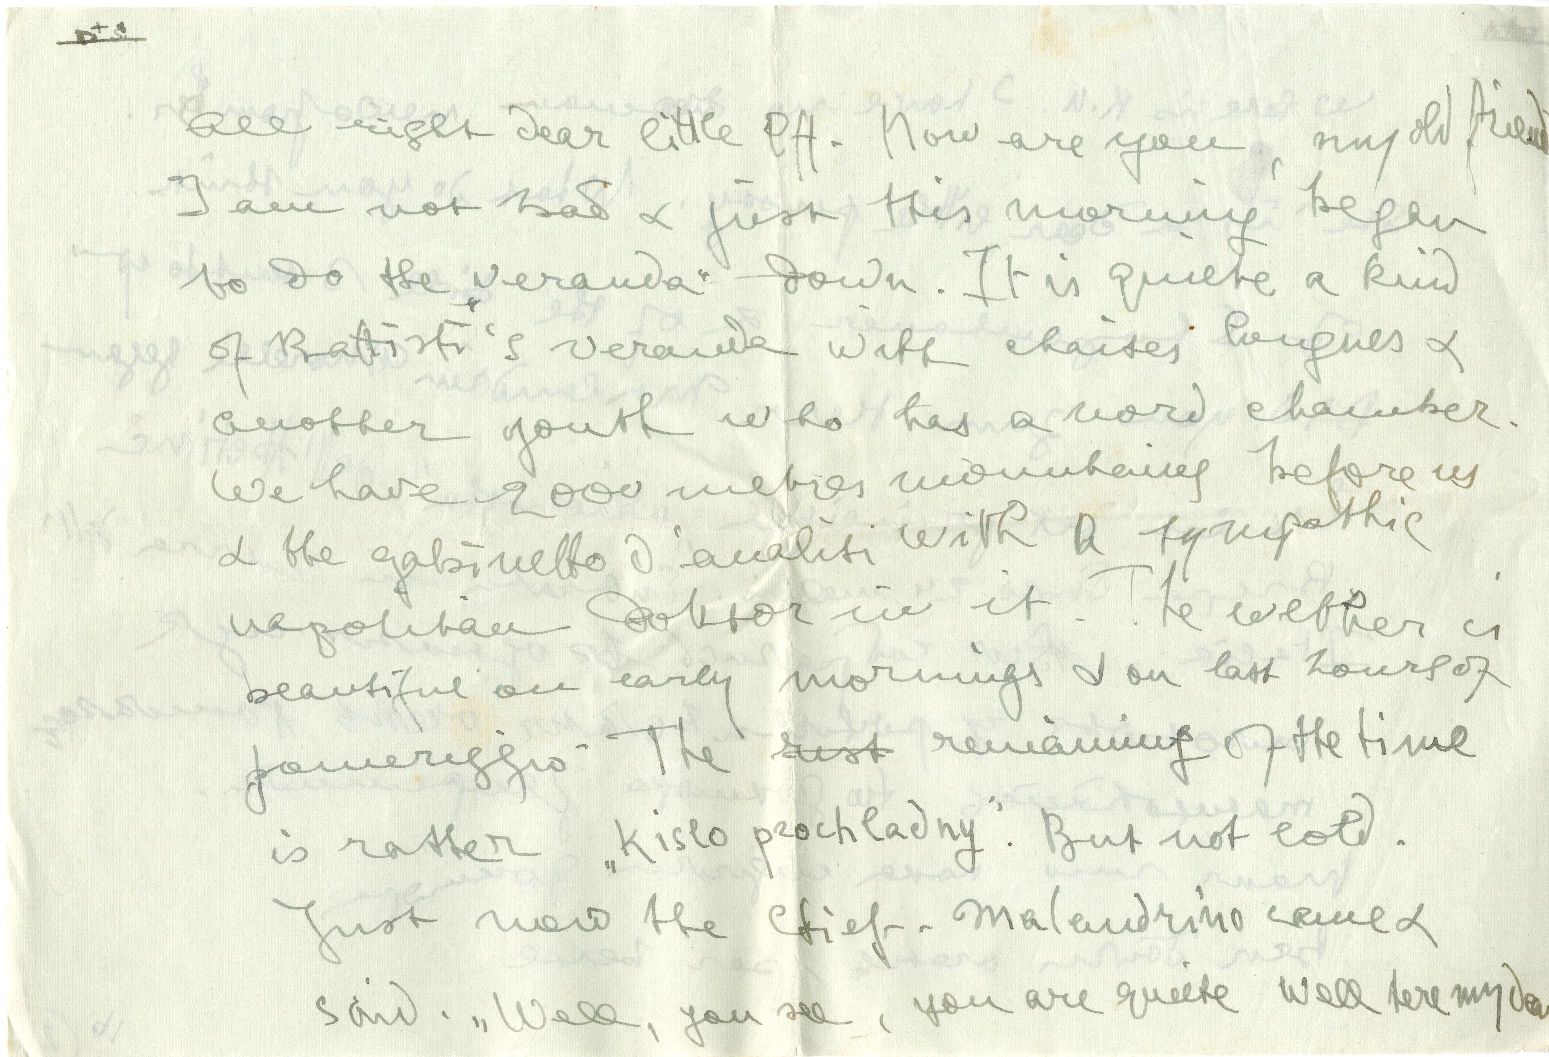 All right dear little Pff. How are you, my old friend
I am not bad & just this morning began
to do the „veranda“ down. It is quiete a kind
of Battisti's veranda with chaises longues &
another youth who has a nord chamber.
We have 2000 metres mounhains before us
& the gabinetto d'analisi with a sympathic
napolitan doktor in it. The wether is
beautiful on early mornings & on last hours of
pomeriggio. The rest remaining of the time
is rather „kislo prochladny“. But not cold.
Just now the Chief-Malandrino came &
said. „Well, you see, you are quiete well here my dear